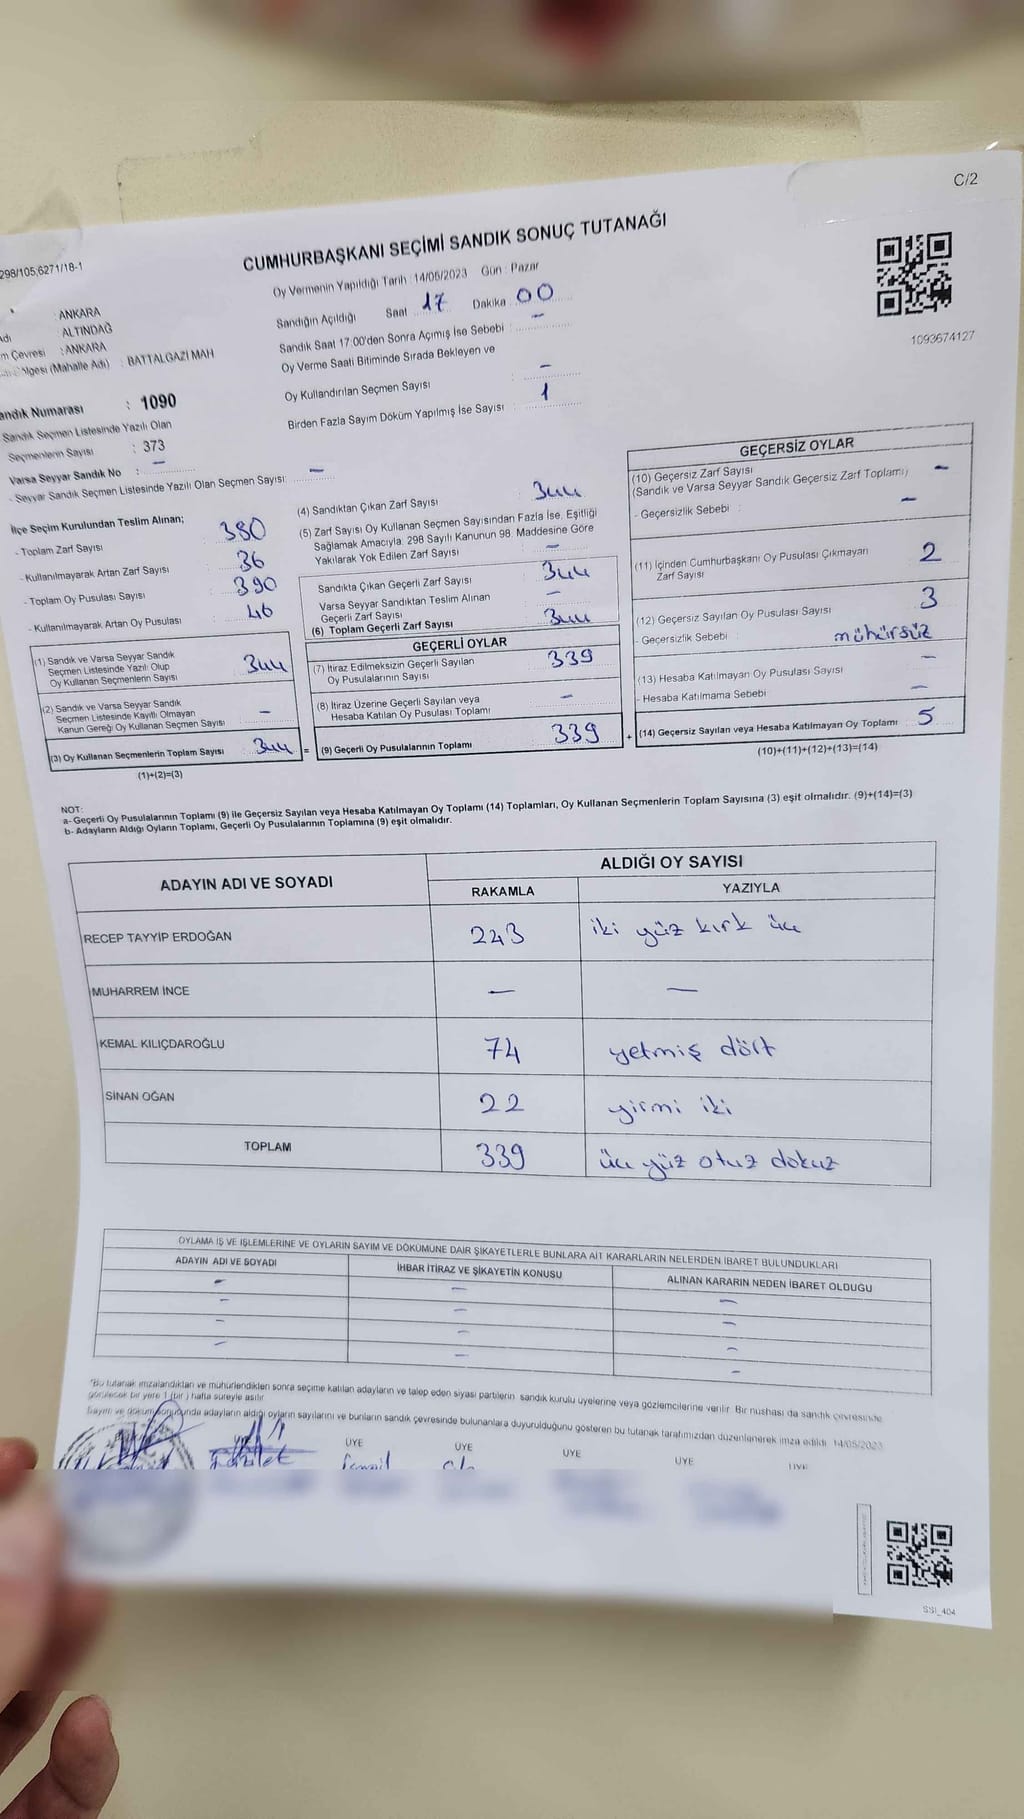 C/2
298/105,6271/18-1
CUMHURBAŞKANI SEÇİMİ SANDIK SONUÇ TUTANAĞI
1093674127
: ANKARA
: ALTINDAĞ
: ANKARA
(Mahalle Adı) : BATTALGAZİ MAH
Numarası : 1090
Sandık Seçmen Listesinde Yazılı Olan
Seçmenlerin Sayısı : 373
Varsa Seyyar Sandık No : –
- Seyyar Sandık Seçmen Listesinde Yazılı Olan Seçmen Sayısı: –
Oy Vermenin Yapıldığı Tarih : 14/05/2023 Gün : Pazar
Sandığın Açıldığı Saat 17 Dakika 00
Sandık Saat 17:00'den Sonra Açılmış İse Sebebi : –
Oy Verme Saati Bitiminde Sırada Bekleyen ve
Oy Kullandırılan Seçmen Sayısı : –
Birden Fazla Sayım Döküm Yapılmış İse Sayısı : 1
İlçe Seçim Kurulundan Teslim Alınan;
- Toplam Zarf Sayısı : 380
- Kullanılmayarak Artan Zarf Sayısı : 36
- Toplam Oy Pusulası Sayısı : 390
- Kullanılmayarak Artan Oy Pusulası : 46
(1) Sandık ve Varsa Seyyar Sandık
Seçmen Listesinde Yazılı Olup
Oy Kullanan Seçmenlerin Sayısı 344
(2) Sandık ve Varsa Seyyar Sandık
Seçmen Listesinde Kayıtlı Olmayan
Kanun Gereği Oy Kullanan Seçmen Sayısı –
(3) Oy Kullanan Seçmenlerin Toplam Sayısı 344 =
(1)+(2)=(3)
(4) Sandıktan Çıkan Zarf Sayısı : 344
(5) Zarf Sayısı Oy Kullanan Seçmen Sayısından Fazla İse, Eşitliği
Sağlamak Amacıyla; 298 Sayılı Kanunun 98. Maddesine Göre
Yakılarak Yok Edilen Zarf Sayısı : –
Sandıkta Çıkan Geçerli Zarf Sayısı : 344
Varsa Seyyar Sandıktan Teslim Alınan
Geçerli Zarf Sayısı : –
(6) Toplam Geçerli Zarf Sayısı 344
GEÇERLİ OYLAR
(7) İtiraz Edilmeksizin Geçerli Sayılan
Oy Pusulalarının Sayısı 339
(8) İtiraz Üzerine Geçerli Sayılan veya
Hesaba Katılan Oy Pusulası Toplamı –
(9) Geçerli Oy Pusulalarının Toplamı 339 +
GEÇERSİZ OYLAR
(10) Geçersiz Zarf Sayısı
(Sandık ve Varsa Seyyar Sandık Geçersiz Zarf Toplamı) –
- Geçersizlik Sebebi : –
(11) İçinden Cumhurbaşkanı Oy Pusulası Çıkmayan
Zarf Sayısı 2
(12) Geçersiz Sayılan Oy Pusulası Sayısı 3
- Geçersizlik Sebebi : mühürsüz
(13) Hesaba Katılmayan Oy Pusulası Sayısı –
- Hesaba Katılmama Sebebi –
(14) Geçersiz Sayılan veya Hesaba Katılmayan Oy Toplamı 5
(10)+(11)+(12)+(13)=(14)
NOT:
a- Geçerli Oy Pusulalarının Toplamı (9) ile Geçersiz Sayılan veya Hesaba Katılmayan Oy Toplamı (14) Toplamları, Oy Kullanan Seçmenlerin Toplam Sayısına (3) eşit olmalıdır. (9)+(14)=(3)
b- Adayların Aldığı Oyların Toplamı, Geçerli Oy Pusulalarının Toplamına (9) eşit olmalıdır.
ADAYIN ADI VE SOYADI ALDIĞI OY SAYISI
RAKAMLA YAZIYLA
RECEP TAYYİP ERDOĞAN 243 iki yüz kırk üç
MUHARREM İNCE – –
KEMAL KILIÇDAROĞLU 74 yetmiş dört
SİNAN OĞAN 22 yirmi iki
TOPLAM 339 üç yüz otuz dokuz
OYLAMA İŞ VE İŞLEMLERİNE VE OYLARIN SAYIM VE DÖKÜMÜNE DAİR ŞİKAYETLERLE BUNLARA AİT KARARLARIN NELERDEN İBARET BULUNDUKLARI
ADAYIN ADI VE SOYADI İHBAR İTİRAZ VE ŞİKAYETİN KONUSU ALINAN KARARIN NEDEN İBARET OLDUĞU
– – –
– – –
– – –
– – –
*Bu tutanak imzalandıktan ve mühürlendikten sonra seçime katılan adayların ve talep eden siyasi partilerin sandık kurulu üyelerine veya gözlemcilerine verilir. Bir nüshası da sandık çevresinde
görülecek bir yere 1 (bir) hafta süreyle asılır.
Sayım ve döküm sonucunda adayların aldığı oyların sayılarını ve bunların sandık çevresinde bulunanlara duyurulduğunu gösteren bu tutanak tarafımızdan düzenlenerek imza edildi. 14/05/2023
ÜYE ÜYE ÜYE ÜYE ÜYE
İsmail
SSİ_404